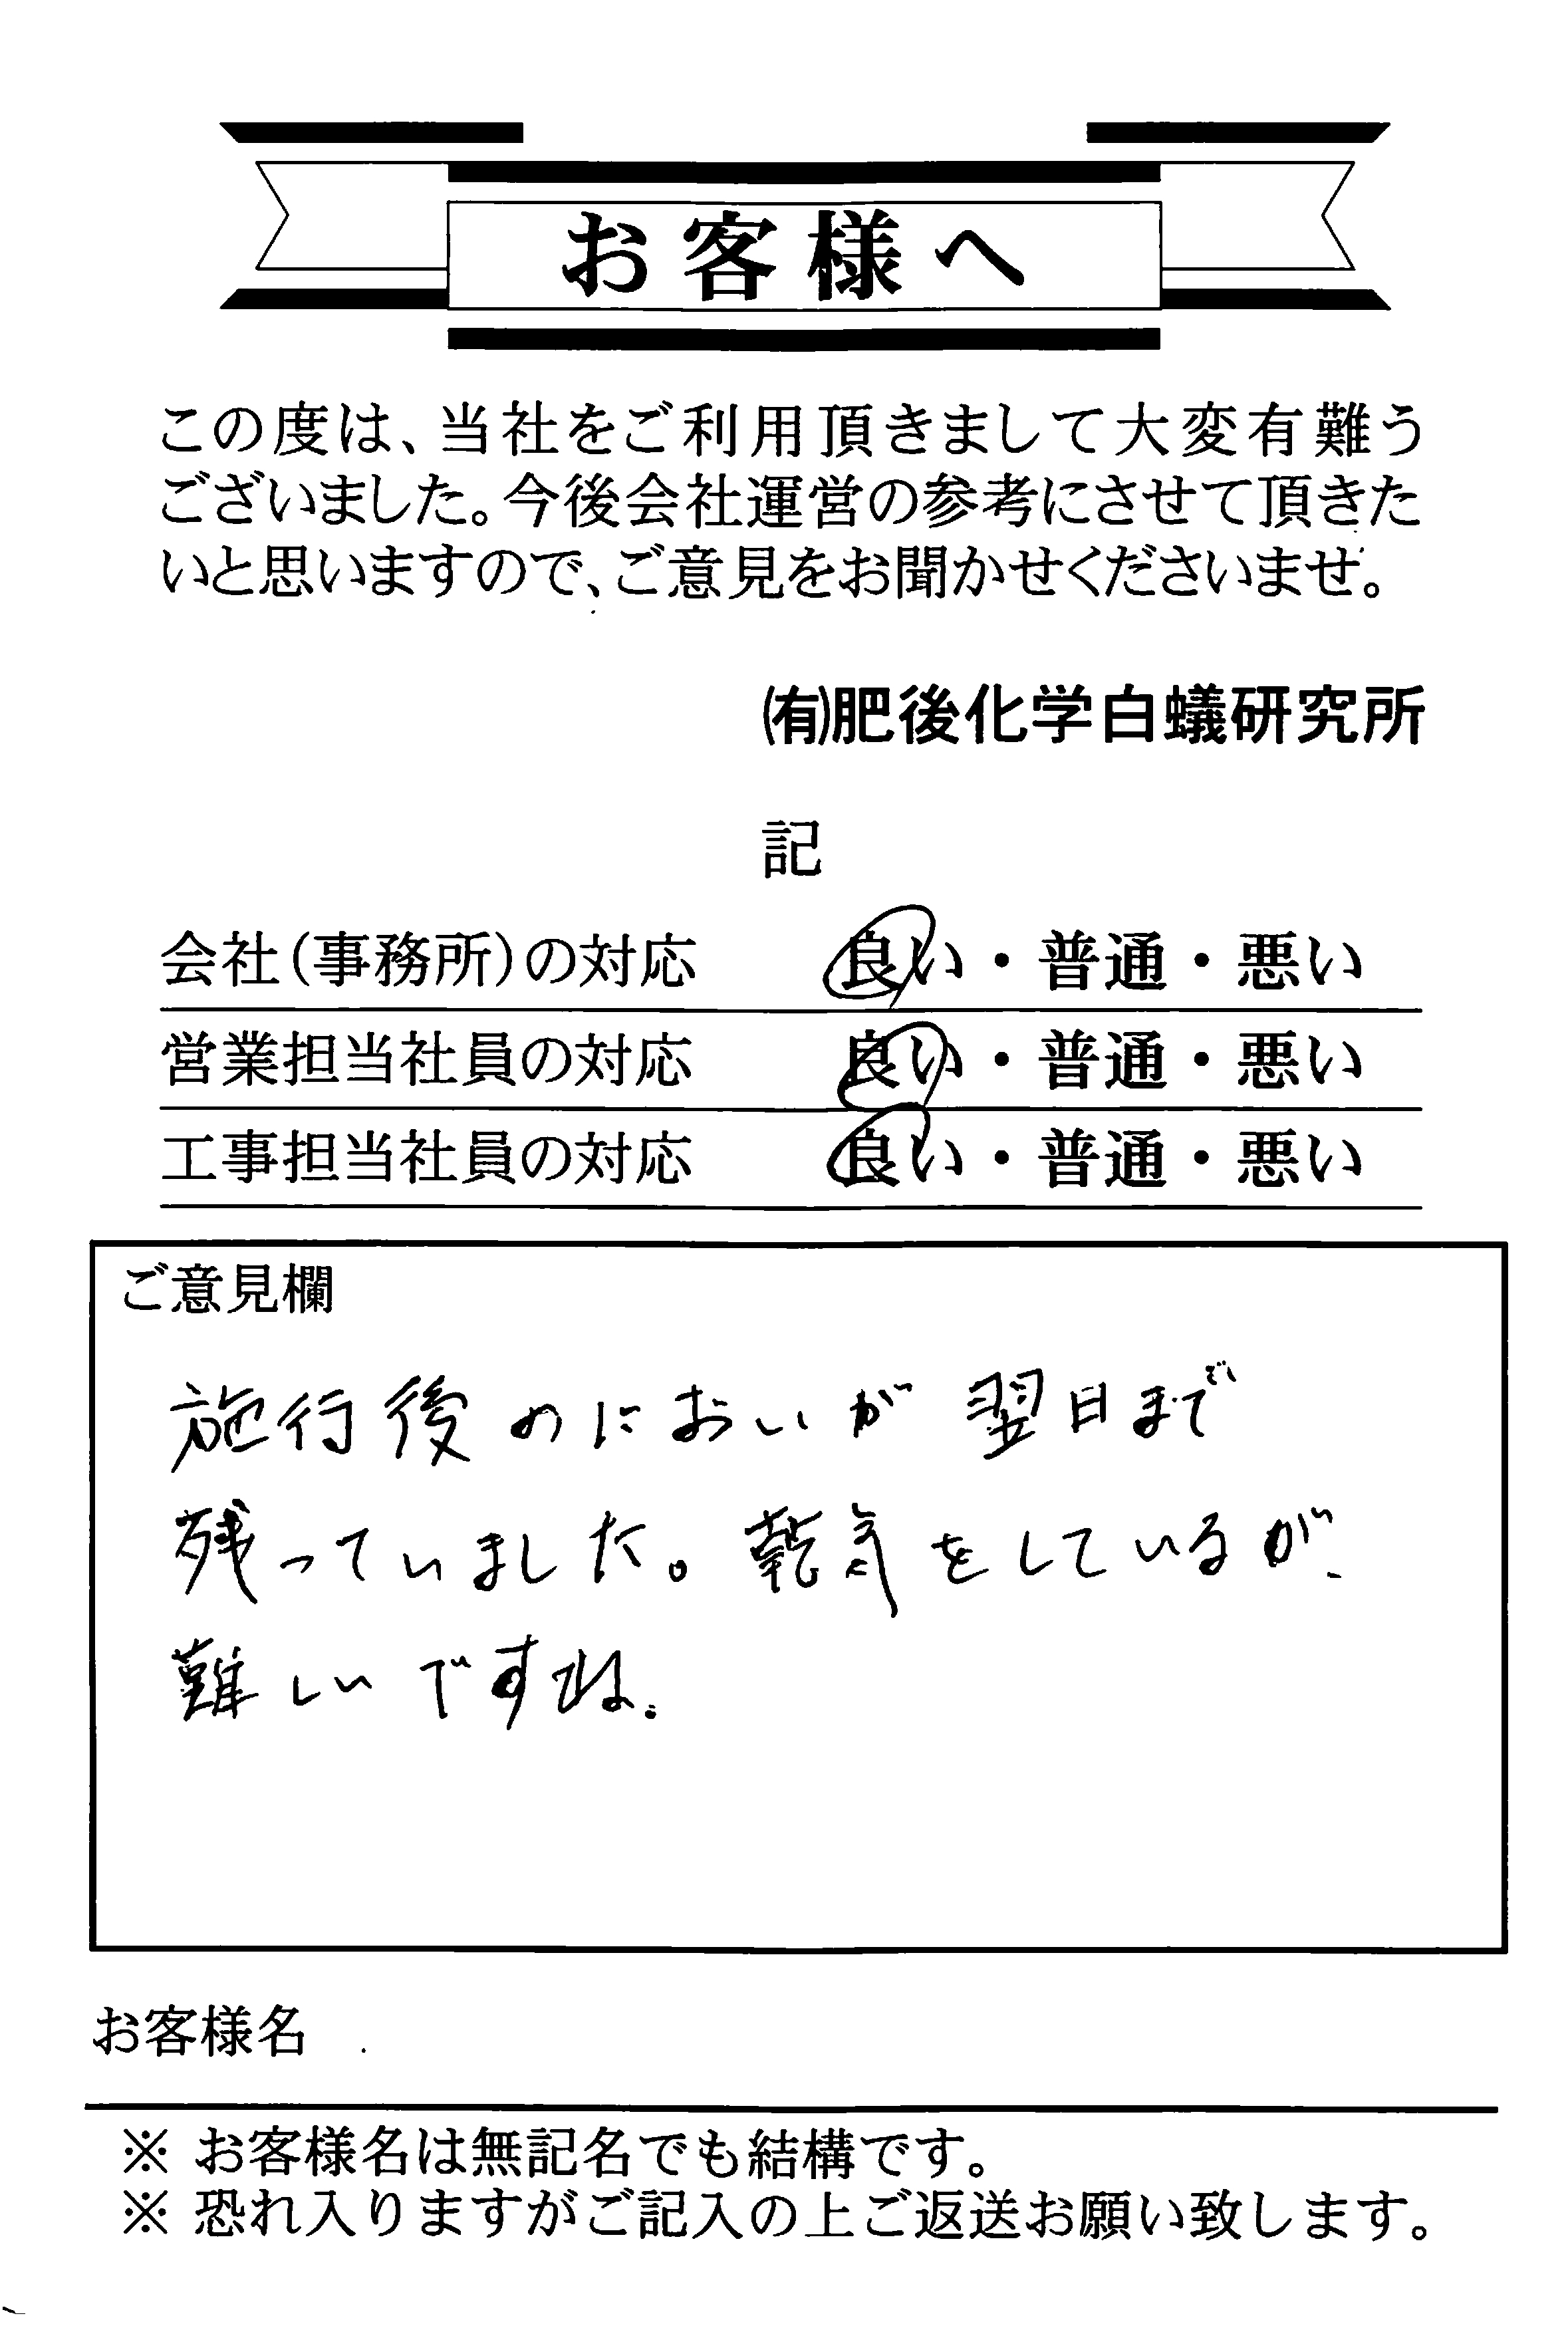 お客様へ
この度は、当社をご利用頂きまして大変有難う
ございました。今後会社運営の参考にさせて頂きた
いと思いますので、ご意見をお聞かせくださいませ。
㈲肥後化学白蟻研究所
記
会社(事務所)の対応 良い・普通・悪い
営業担当社員の対応 良い・普通・悪い
工事担当社員の対応 良い・普通・悪い
ご意見欄
施行後のにおいが翌日まで
残っていました。乾気をしているが、
難しいですね。
お客様名
※ お客様名は無記名でも結構です。
※ 恐れ入りますがご記入の上ご返送お願い致します。